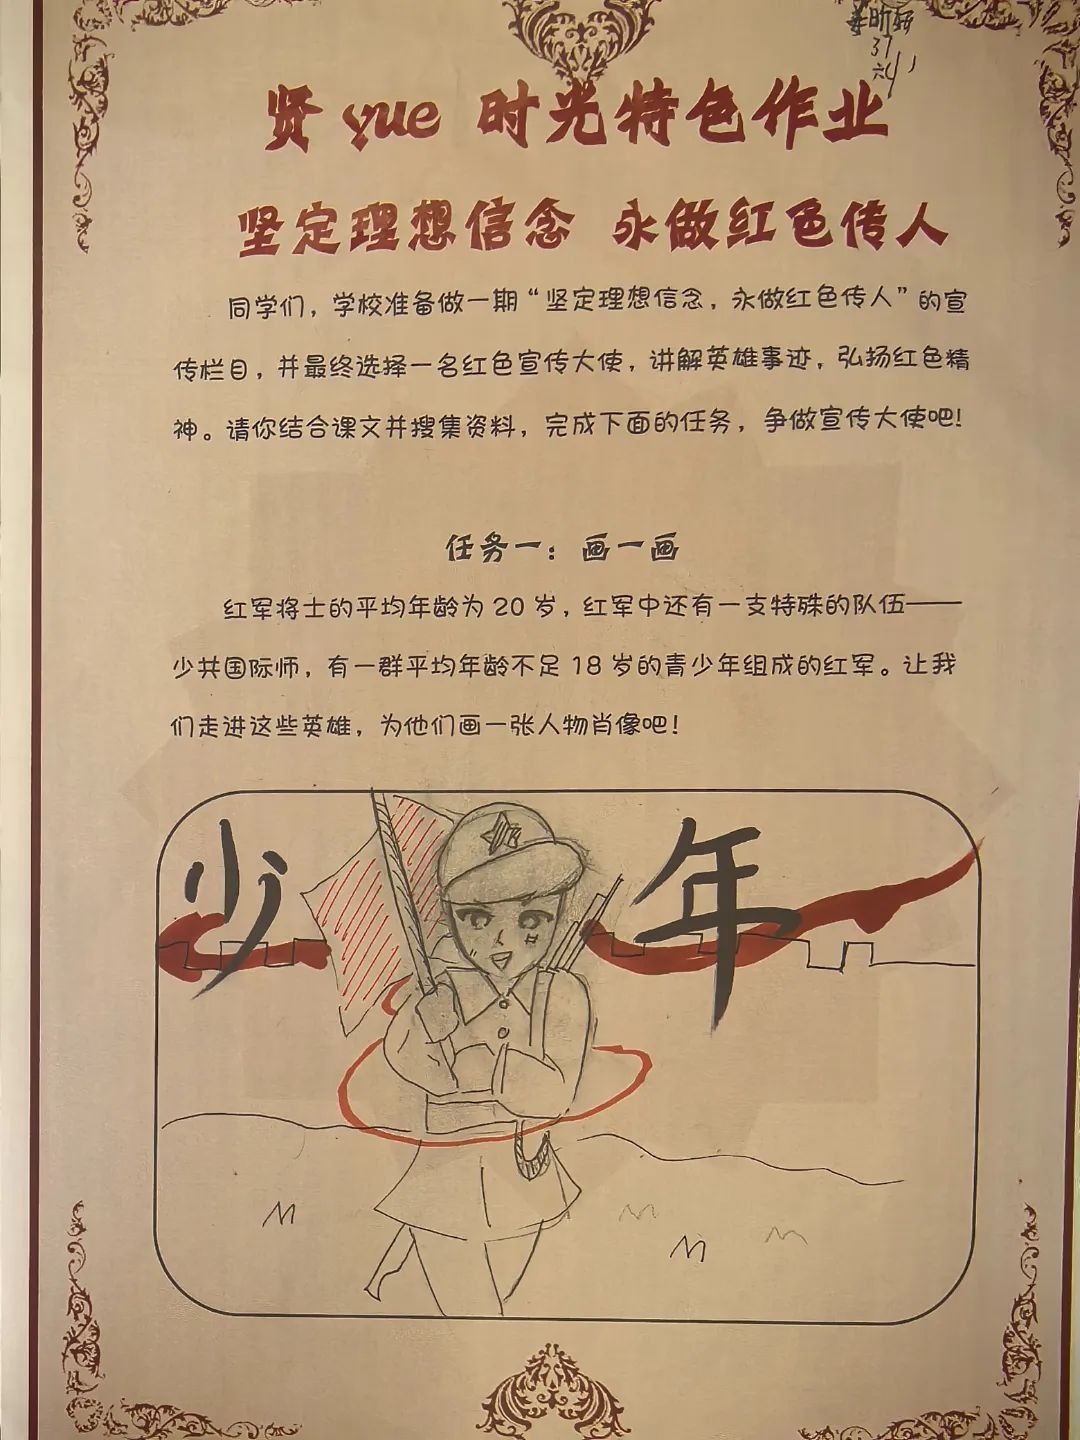 昕
37
六4
贤 yue 时光特色作业
坚定理想信念 永做红色传人
同学们，学校准备做一期“坚定理想信念，永做红色传人”的宣
传栏目，并最终选择一名红色宣传大使，讲解英雄事迹，弘扬红色精
神。请你结合课文并搜集资料，完成下面的任务，争做宣传大使吧！
任务一：画一画
红军将士的平均年龄为 20 岁，红军中还有一支特殊的队伍——
少共国际师，有一群平均年龄不足 18 岁的青少年组成的红军。让我
们走进这些英雄，为他们画一张人物肖像吧！
少年